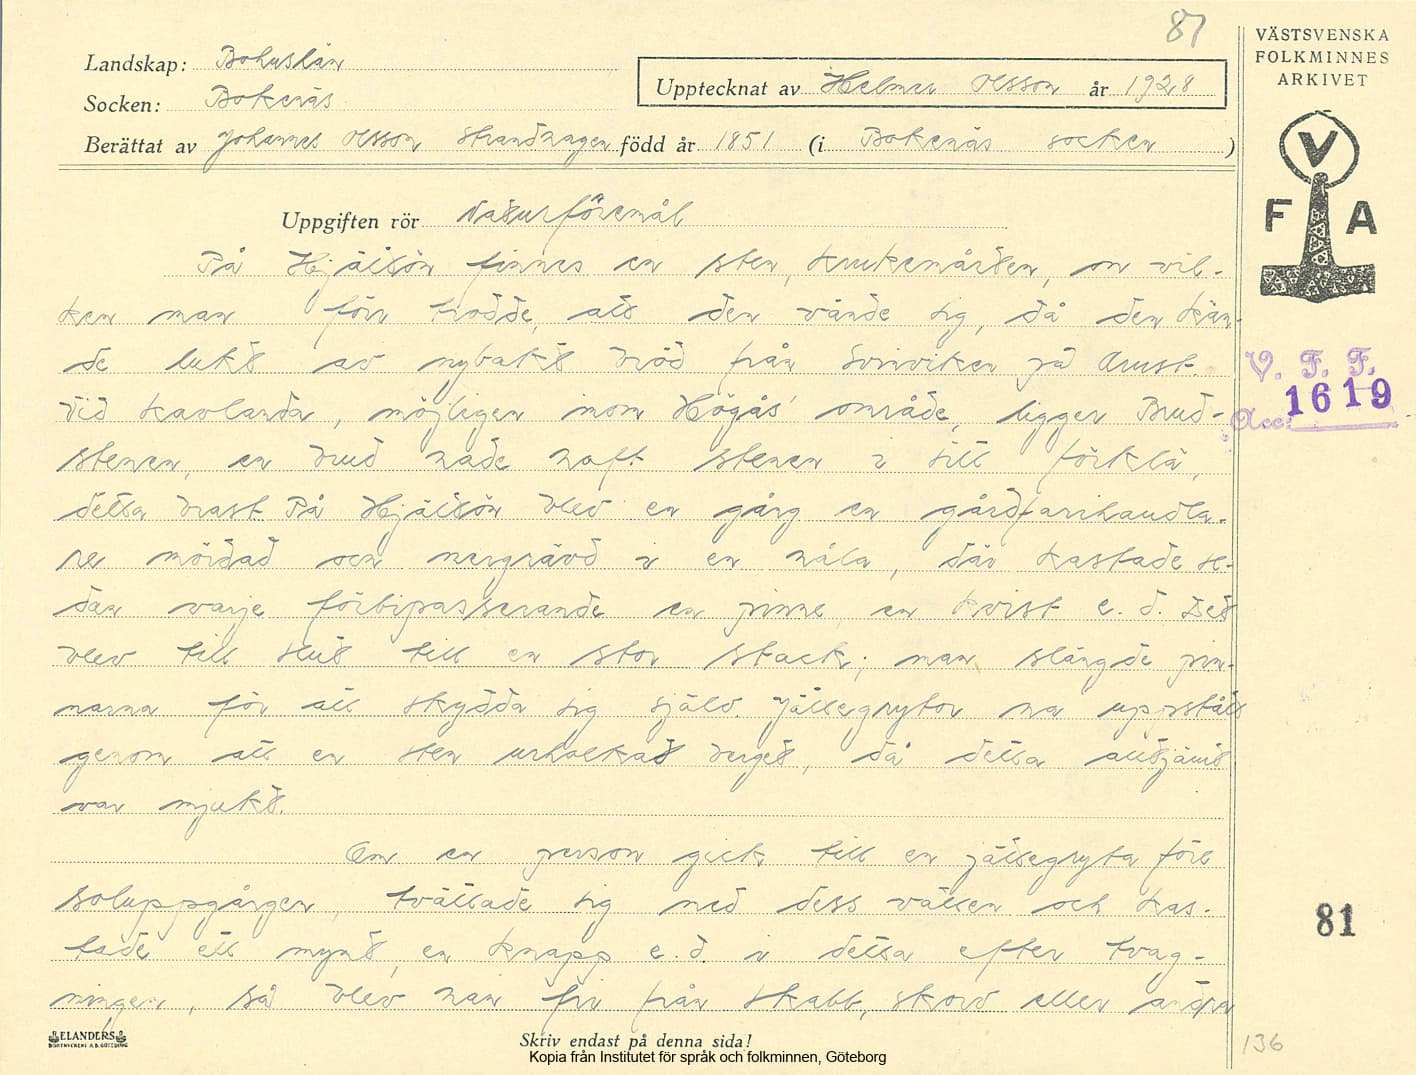 81
VÄSTSVENSKA
FOLKMINNES
ARKIVET
Landskap: Bohuslän
Socken: Bokenäs
Upptecknat av Helmer Olsson år 1928
Berättat av Johannes Olsson Strandhagen född år 1851 (i Bokenäs socken)
V
F A
Uppgiften rör Naturföremål
På Hjältön finnes en sten, om vil-
ken man förr trodde, att den vände sig, då den kän-
de lukt av nybakt bröd från på Orust.
Vid Kavlanda, möjligen inom Högås' område, ligger Brud-
stenen, en brud hade haft stenen i sitt förklä,
detta brast. På Hjältön blev en gång en gårdfarihandla-
re mördad och nergrävd i en håla, där kastade se-
dan varje förbipasserande en pinne, en kvist e. d. Det
blev till slut till en stor stack; man slängde pin-
narna för att skydda sig själv. Jättegrytor ha uppstått
genom att en sten urholkat berget, då detta alltjämt
var mjukt.
Om en person gick till en jättegryta före
soluppgången, tvättade sig med dess vatten och kas-
tade ett mynt, en knapp e.d. i detta efter tvag-
ningen, så blev han fri från skabb, skorv eller andra
V. F. F.
Acc. 1619
81
ELANDERS
BOKTRYCKERI A.B. GÖTEBORG
Skriv endast på denna sida!
Kopia från Institutet för språk och folkminnen, Göteborg
136